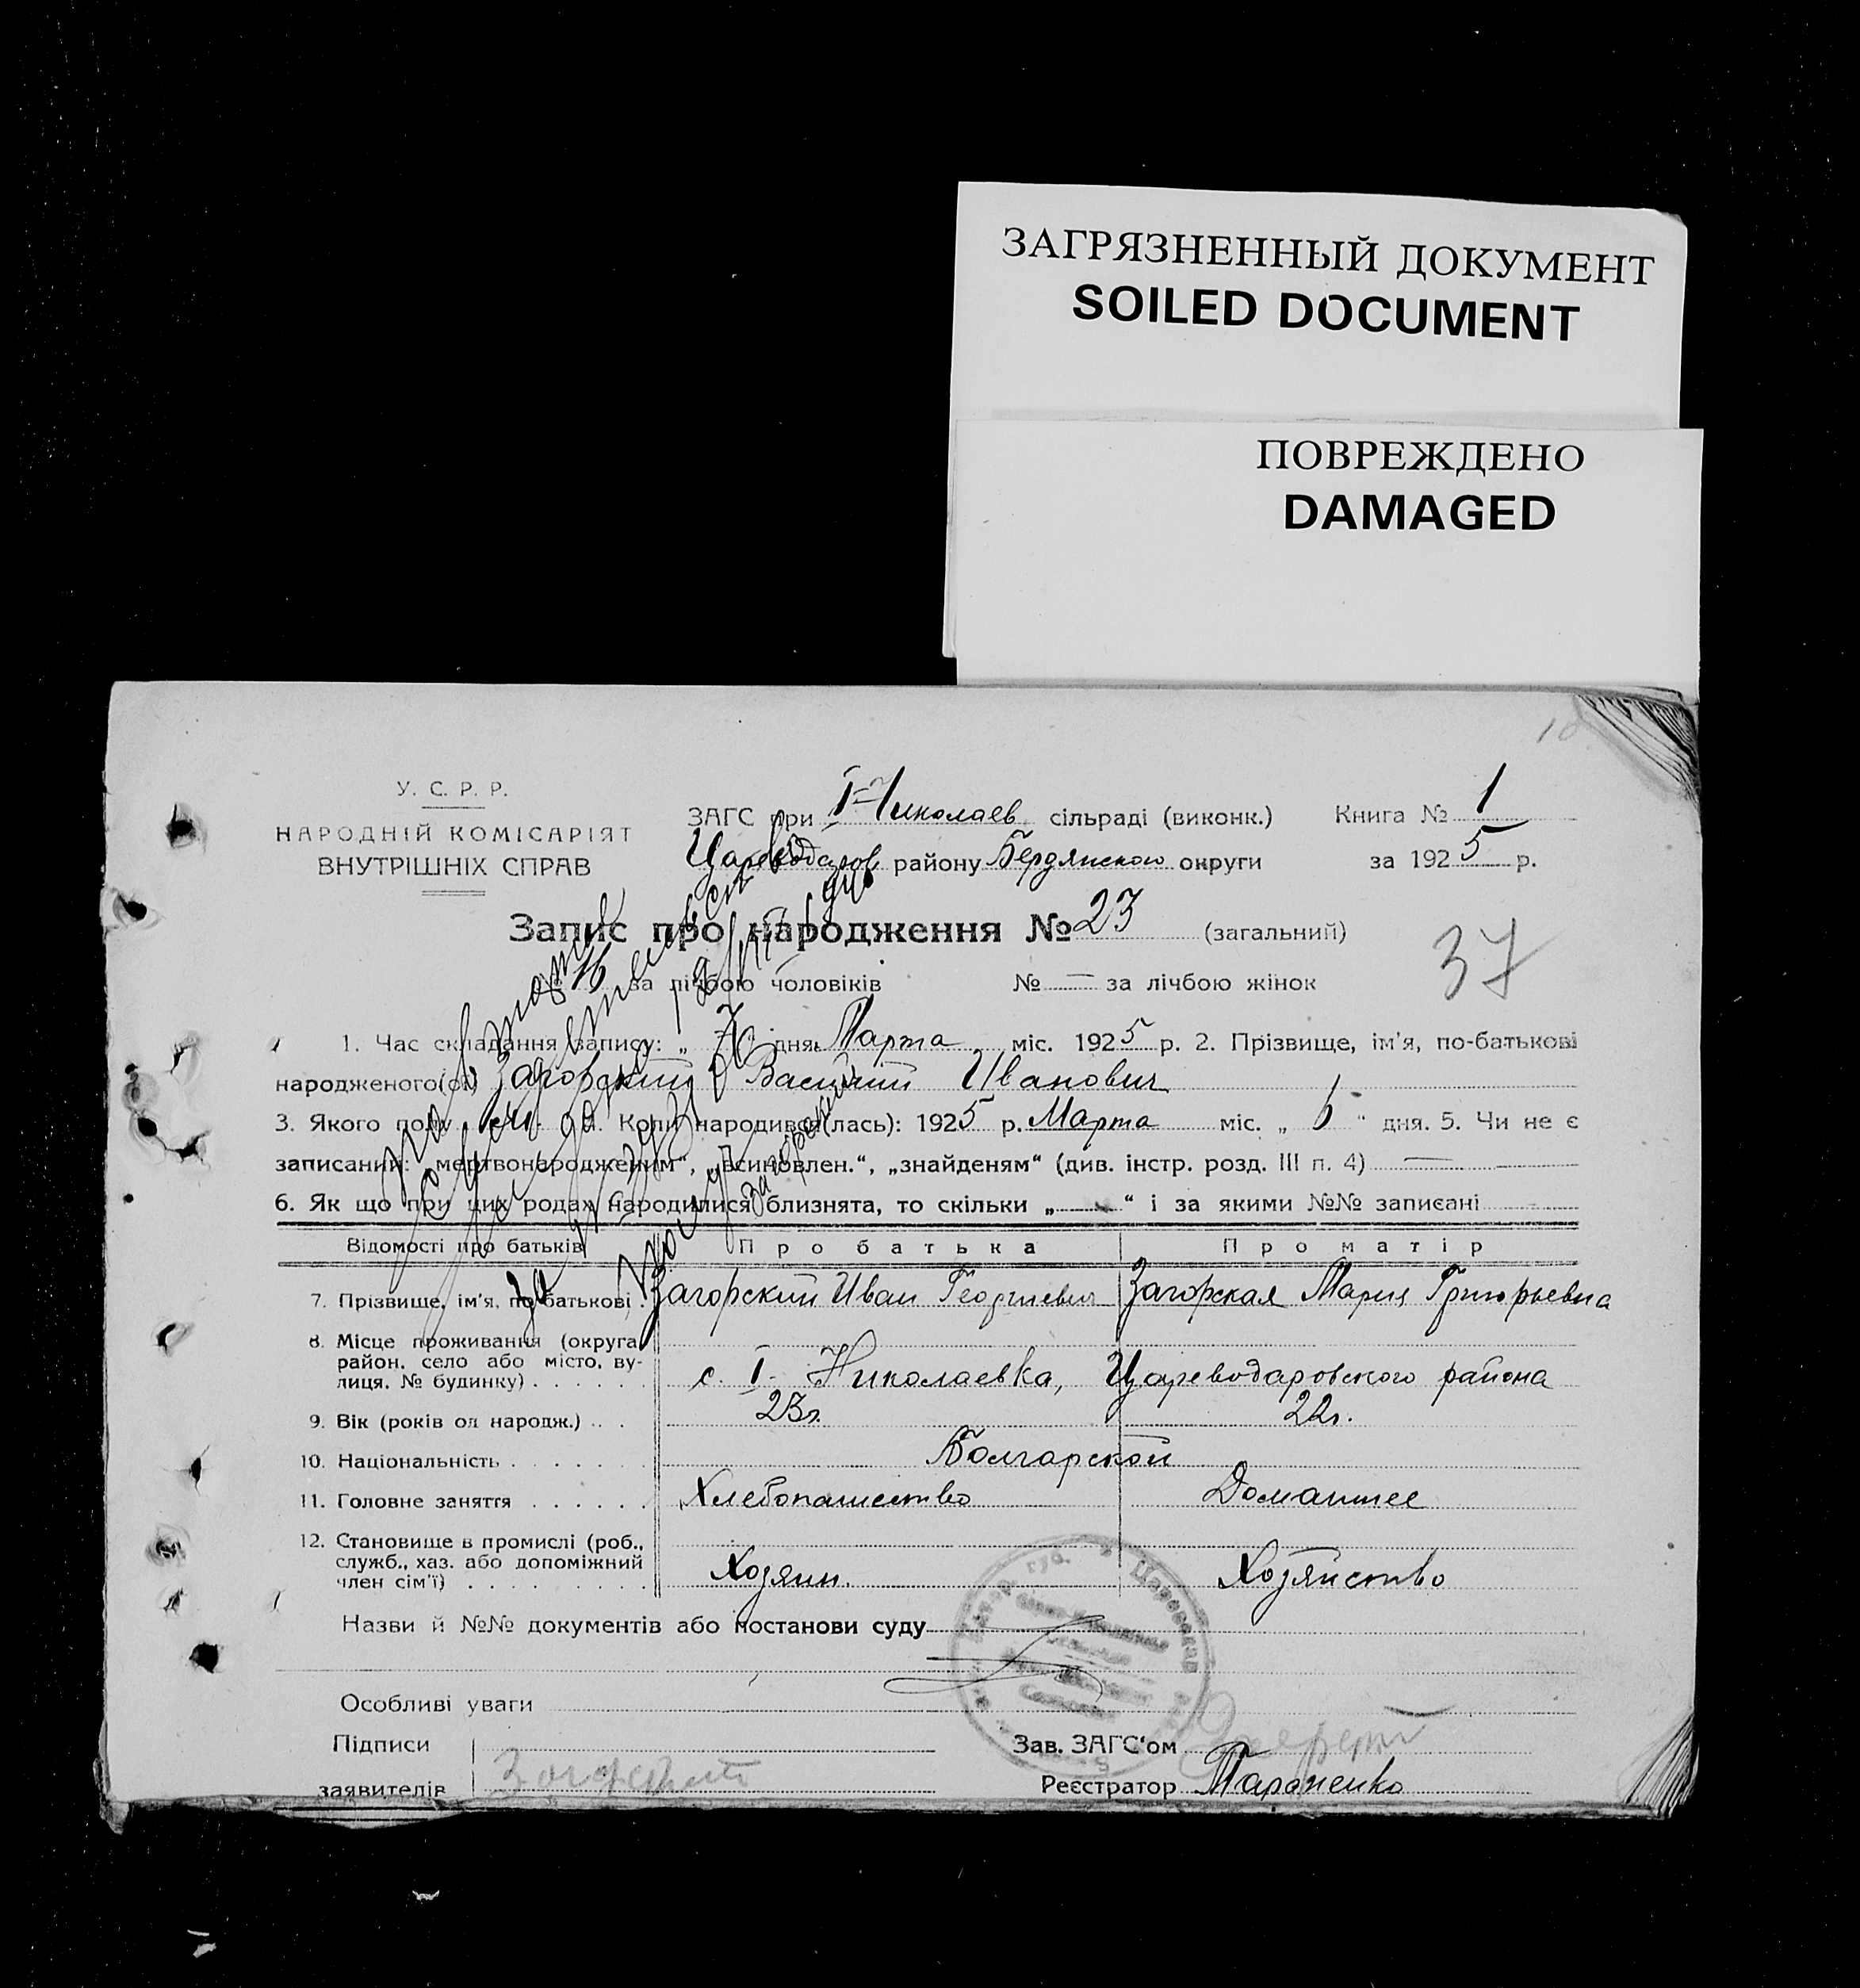 ЗАГРЯЗНЕННЫЙ ДОКУМЕНТ
SOILED DOCUMENT
ПОВРЕЖДЕНО
DAMAGED
У. С. Р. Р.
НАРОДНІЙ КОМІСАРІЯТ
ВНУТРІШНІХ СПРАВ
ЗАГС при I-Николаев сільраді (виконк.) Книга № 1
району Бердянской округи за 1925 р.
Запис про народження № 23 (загальний)
37
16 за лічбою чоловіків № — за лічбою жінок
1. Час складання запису: „ 7 " дня Марта міс. 1925 р. 2. Прізвище, ім'я, по-батькові
народженого(ої) Загорский Василий Иванович
3. Якого полу 4. Коли народився(лась): 1925 р. Марта міс. „ 6 " дня. 5. Чи не є
записаний: „мертвонародженим“, „всиновлен.“, „знайденям“ (див. інстр. розд. III п. 4) —
6. Як що при цих родах народилися близнята, то скільки „ “ і за якими №№ записані
Відомості про батьків Про батька Про матір
7. Прізвище, ім'я, по батькові Загорский Иван Георгиевич Загорская Мария Григорьевна
8. Місце проживання (округа,
район, село або місто, ву-
лиця, № будинку) с. I- Николаевка, Цареводаровского района
9. Вік (років од народж.) 23г. 22г.
10. Національність Болгарской
11. Головне заняття Хлебопашество Домашнее
12. Становище в промислі (роб.,
служб., хаз. або допоміжний
член сім'ї) Хозяин. Хозяйство
Назви й №№ документів або постанови суду
Особливі уваги
Підписи Зав. ЗАГС'ом
заявителів Загорский Реєстратор Тараненко